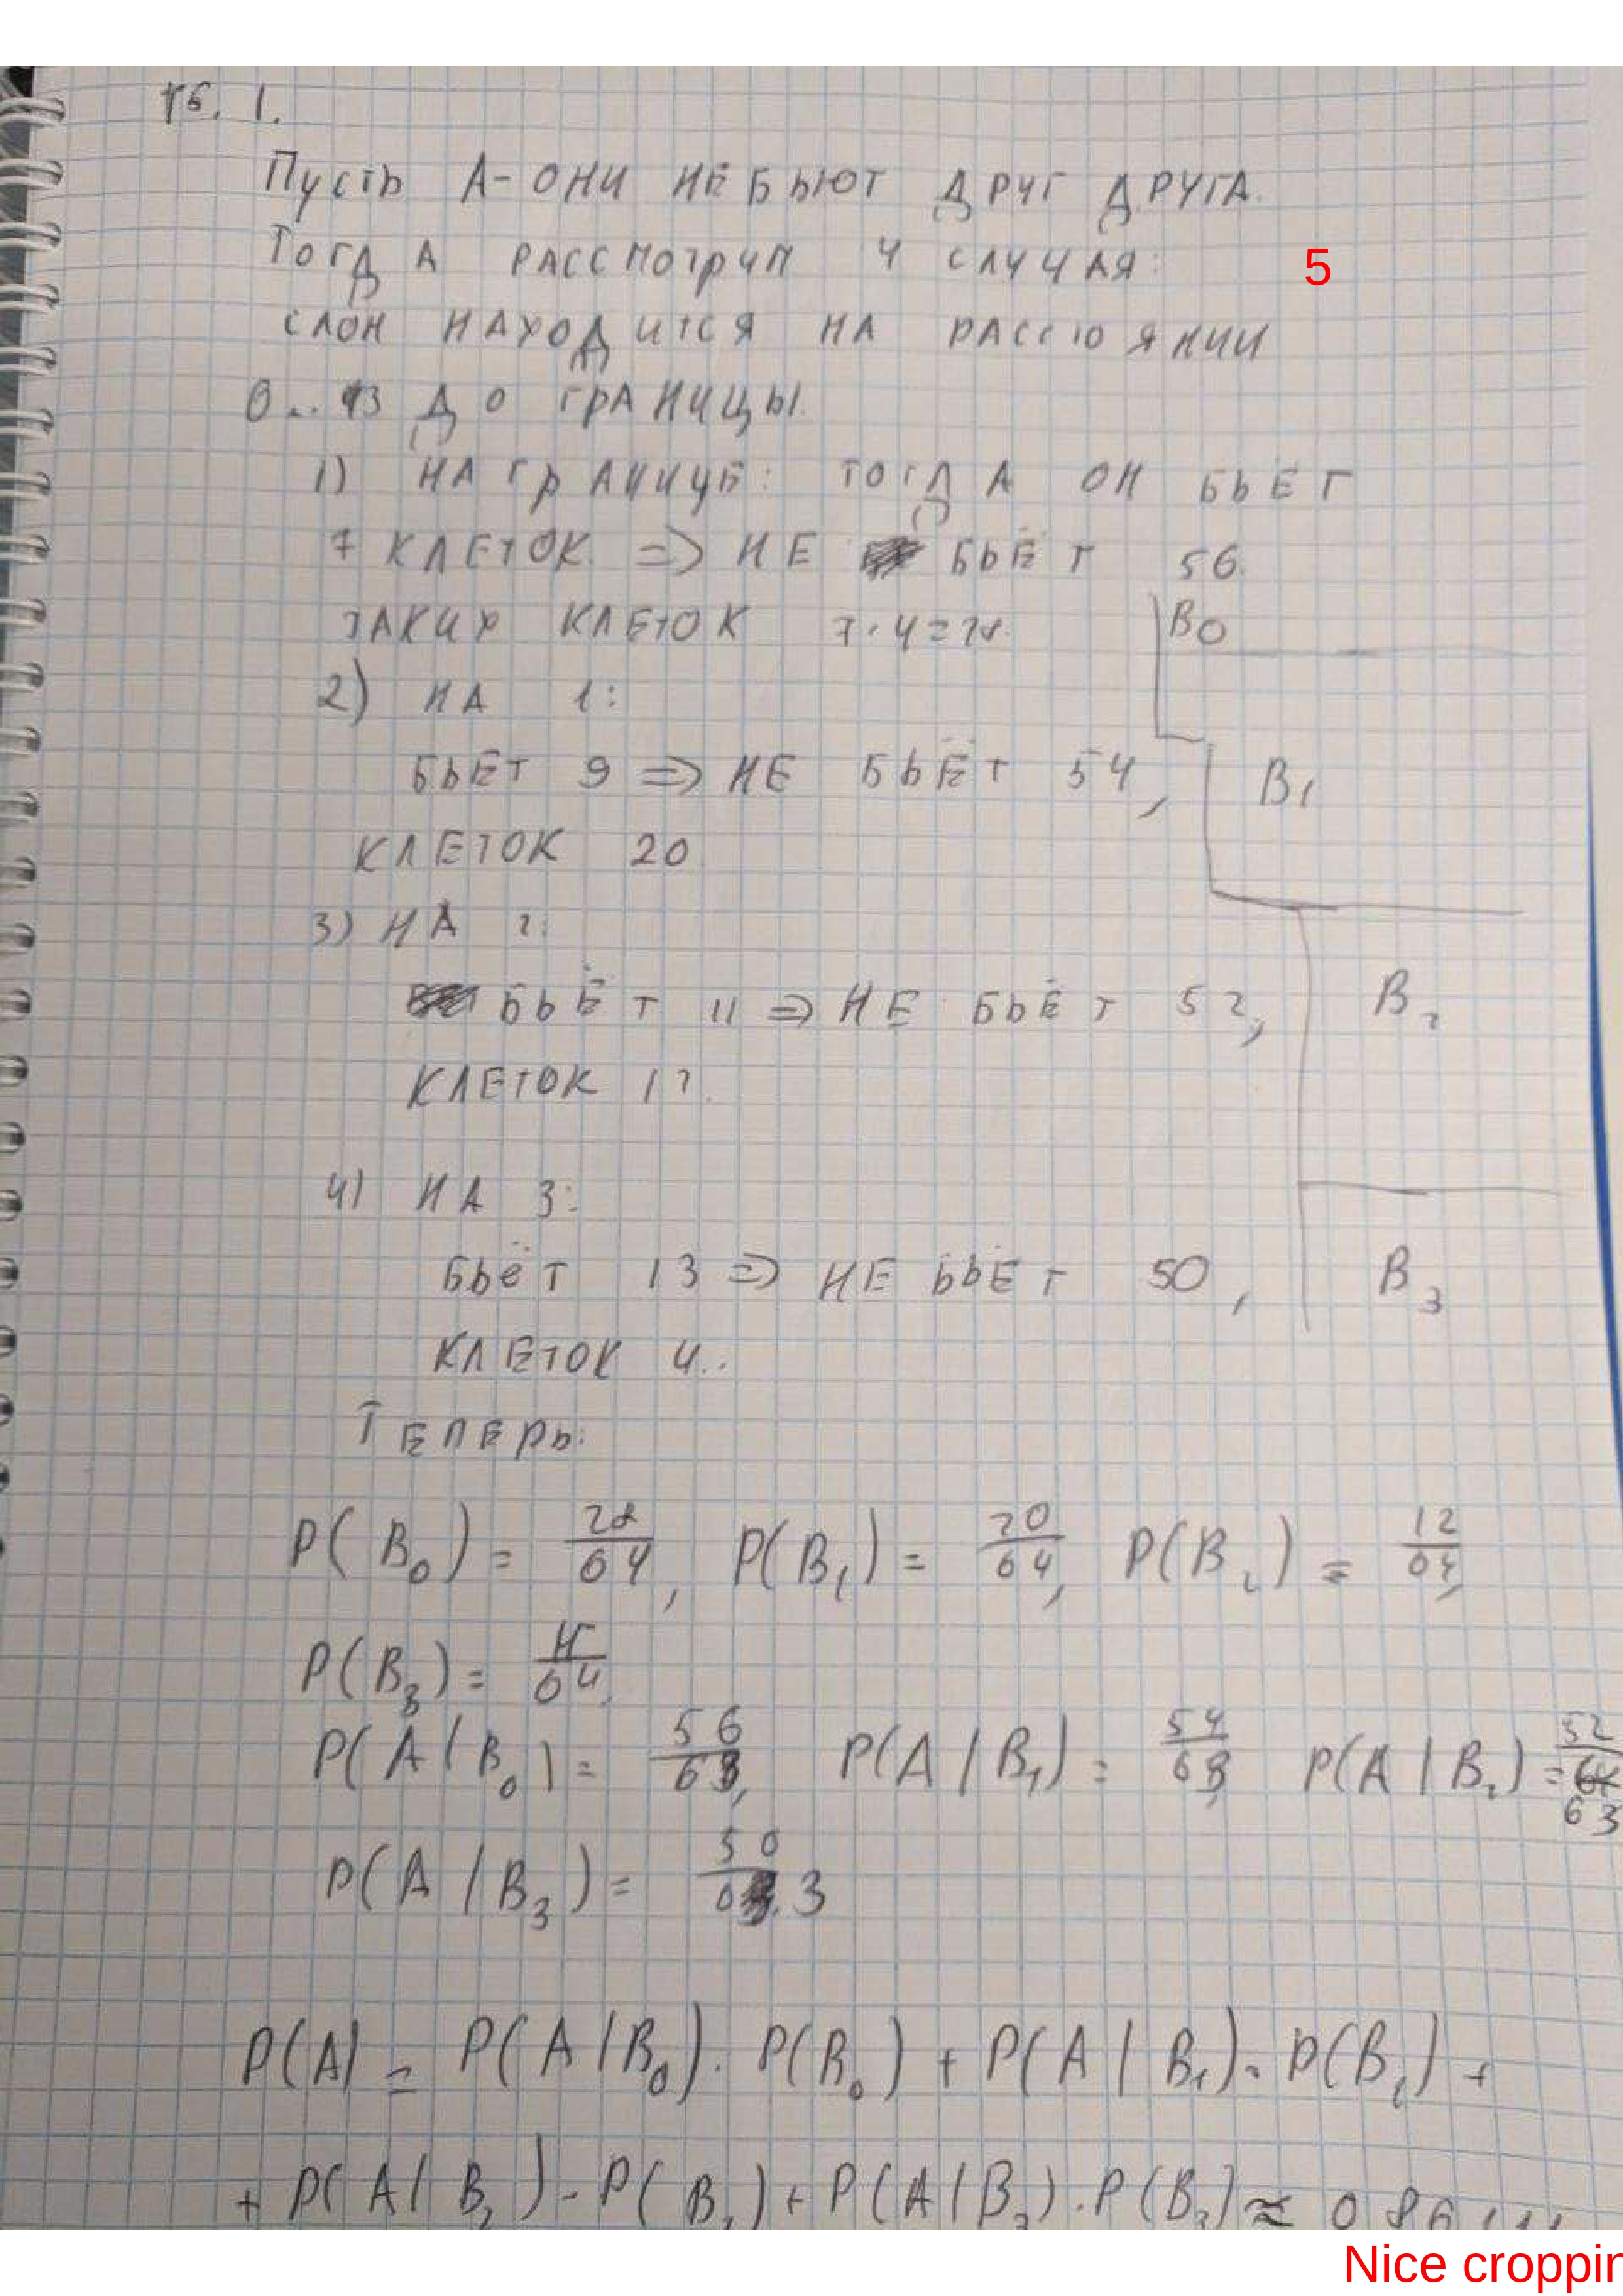 T6. 1.
Пусть А - ОНИ НЕ БЬЮТ ДРУГ ДРУГА.
Тогда РАССМОТРИМ 4 СЛУЧАЯ:
5
СЛОН НАХОДИТСЯ НА РАССТОЯНИИ
0..3 ДО ГРАНИЦЫ.
1) НА ГРАНИЦЕ: ТОГДА ОН БЬЁТ
7 КЛЕТОК. => НЕ БЬЁТ 56.
ТАКИХ КЛЕТОК 7·4=28.
B0
2) НА 1:
БЬЁТ 9 => НЕ БЬЁТ 54,
B1
КЛЕТОК 20
3) НА 2:
БЬЁТ 11 => НЕ БЬЁТ 52,
B2
КЛЕТОК 12.
4) НА 3:
БЬЁТ 13 => НЕ БЬЁТ 50,
B3
КЛЕТОК 4..
ТЕПЕРЬ:
P(B0) = 28/64, P(B1) = 20/64, P(B2) = 12/64,
P(B3) = 4/64,
P(A|B0) = 56/63, P(A|B1) = 54/63, P(A|B2) = 52/63
P(A|B3) = 50/63
P(A) = P(A|B0)·P(B0) + P(A|B1)·P(B1) +
+ P(A|B2)·P(B2) + P(A|B3)·P(B3) ≈ 0 86111
Nice croppin